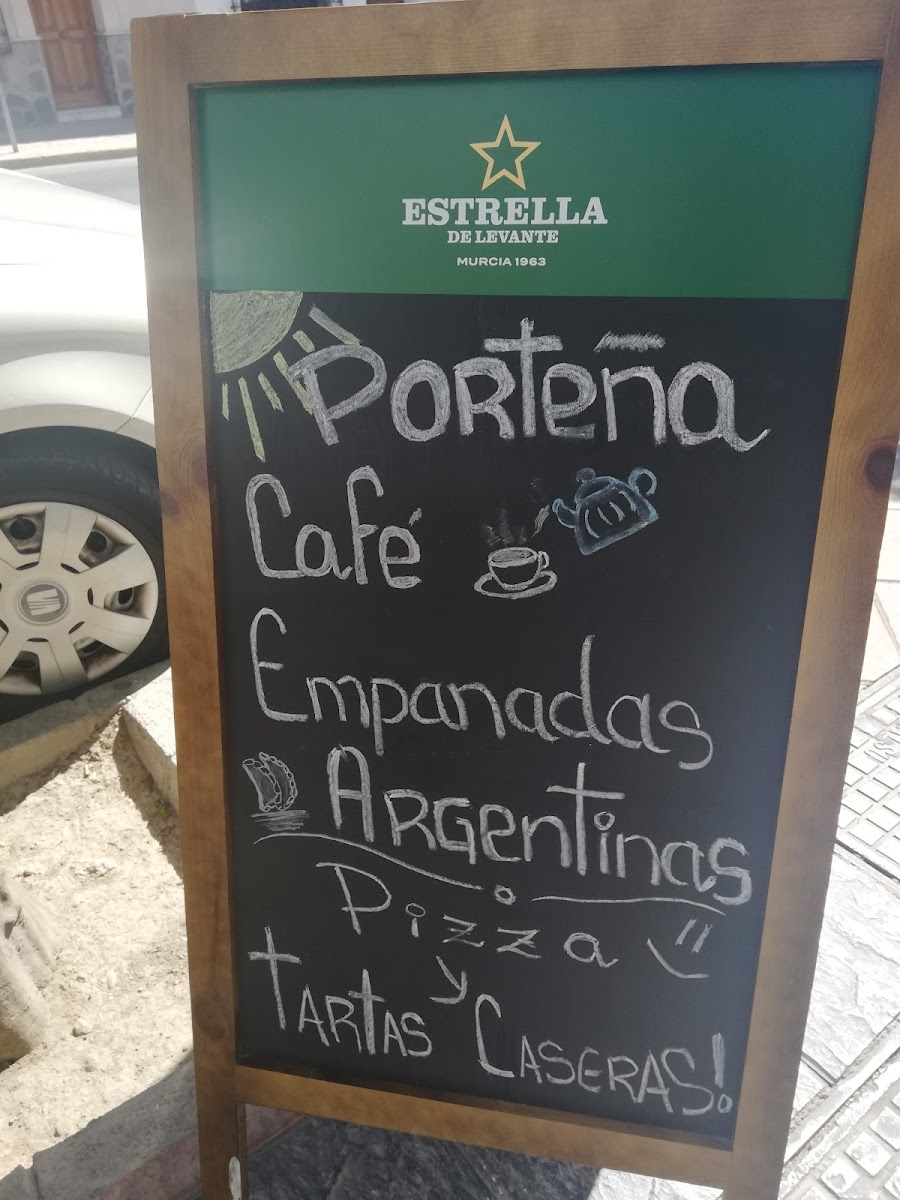 ESTRELLA
DE LEVANTE
MURCIA 1963
PORTEÑA
Café
Empanadas
ARGENTINAS
Pizza
y
TARTAS CASERAS!